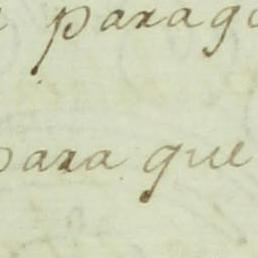 parag
para que